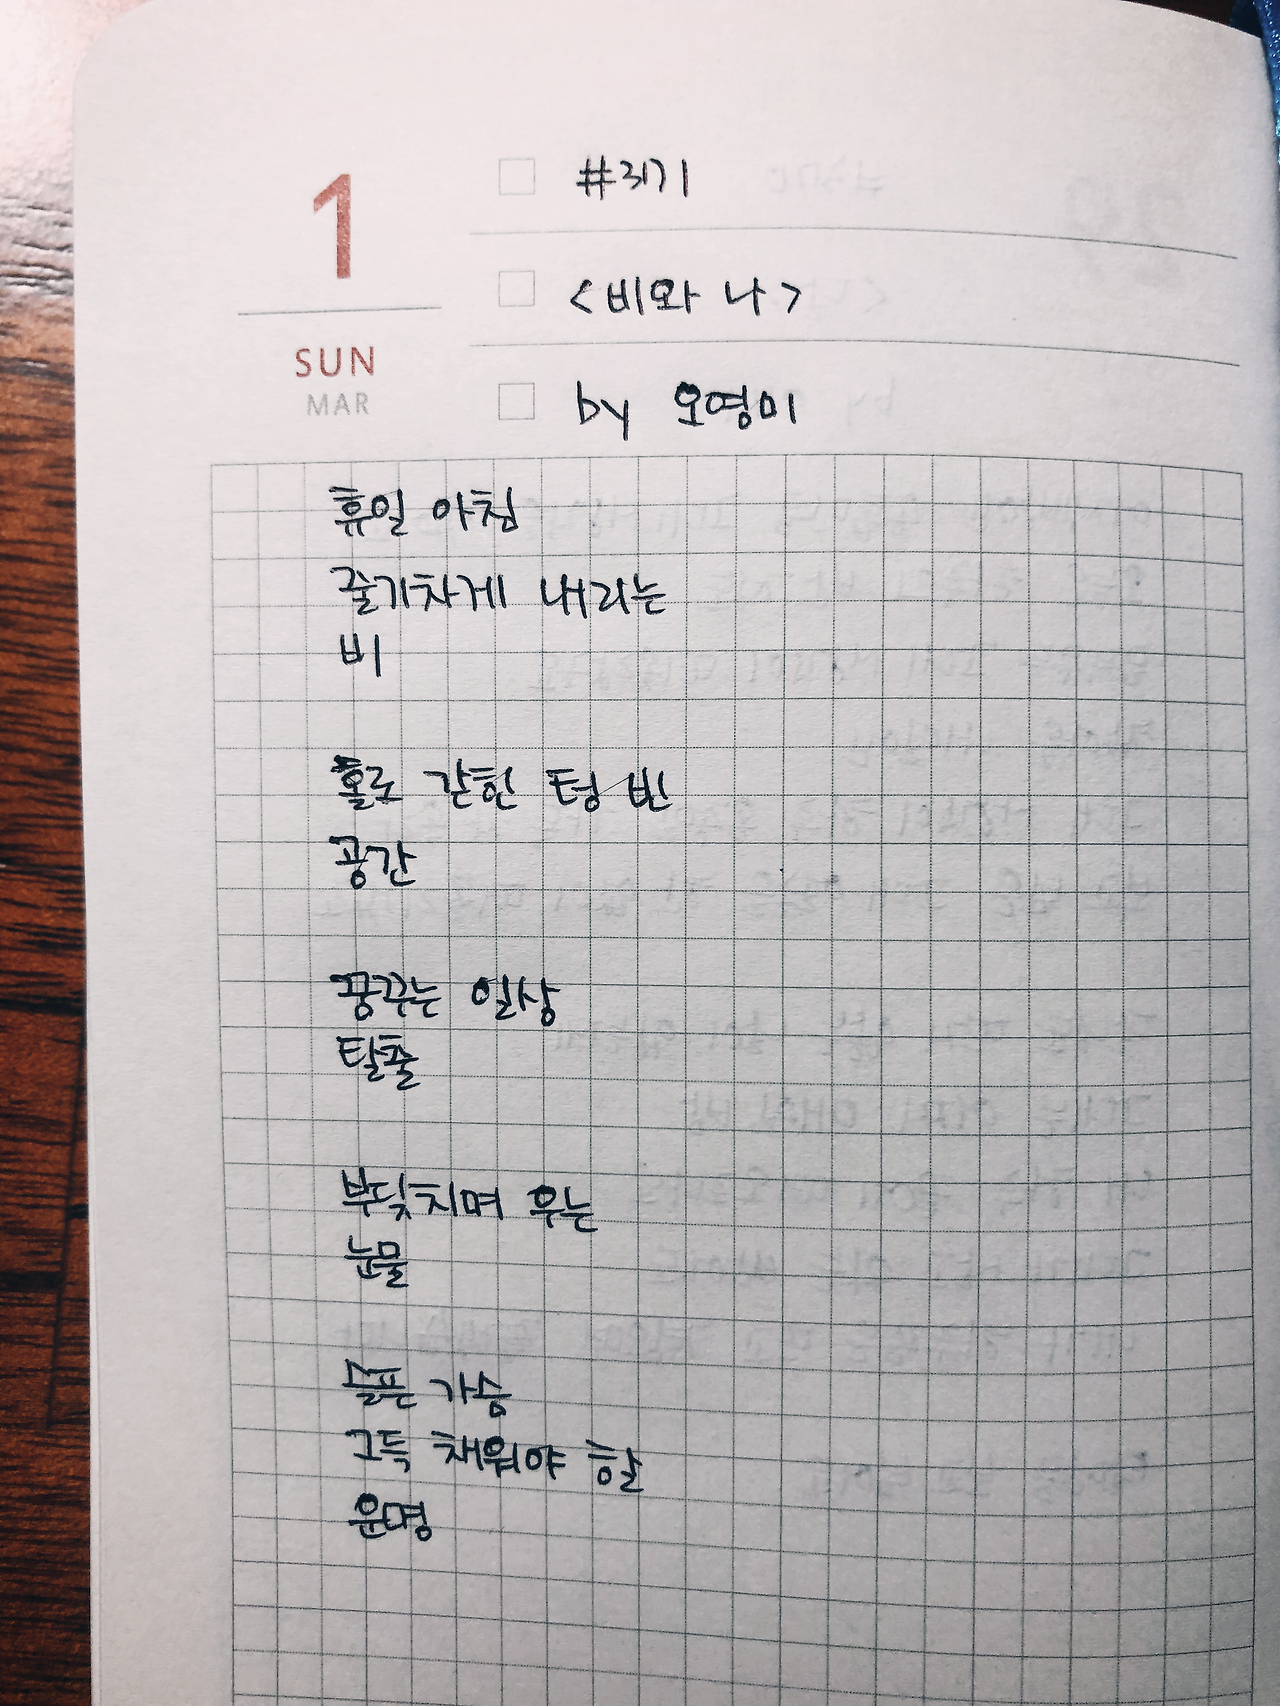 1
SUN
MAR
#3171
<비와 나>
by 오영미
휴일 아침
줄기차게 내리는
비
홀로 갇힌 텅 빈
공간
꿈꾸는 일상
탈출
부딪치며 우는
눈물
슬픈 가슴
그득 채워야 할
운명